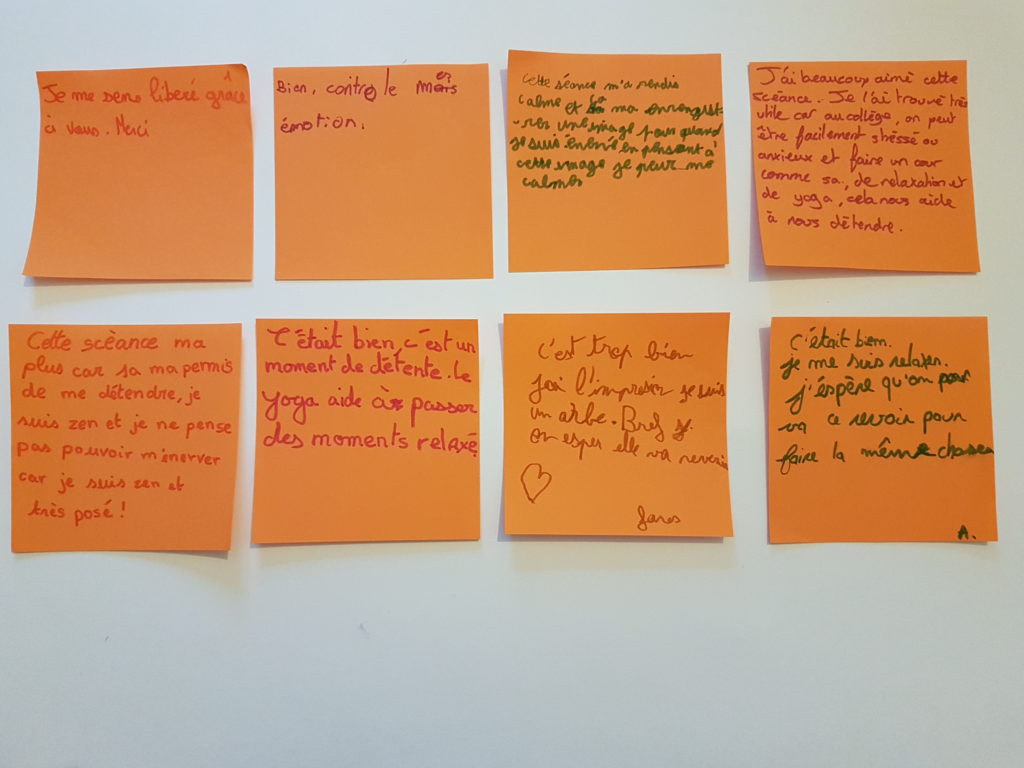 Je me sens libéré grâce
à vous. Merci
Bien, controle mes
émotion.
Cette séance m'a rendis
calme et ma enrengist-
-rer une image pour quand
je suis énervé en pensent à
cette image je peux me
calmer
J'ai beaucoup aimé cette
scéance. Je l'ai trouvé très
utile car au collège, on peut
être facilement stréssé ou
anxieux et faire un cour
comme sa, de relaxation et
de yoga, cela nous aide
à nous détendre.
Cette scéance ma
plus car sa ma permis
de me détendre, je
suis zen et je ne pense
pas pouvoir m'énerver
car je suis zen et
très posé !
C'était bien, c'est un
moment de détente. Le
yoga aide à passer
des moments relaxé
C'est trop bien
j'ai l'impresion je suis
un arbe. Bref
on esper elle va revenir
C'était bien.
je me suis relaxer.
j'éspère qu'on
va ce revoir pour
faire la même choses
A.